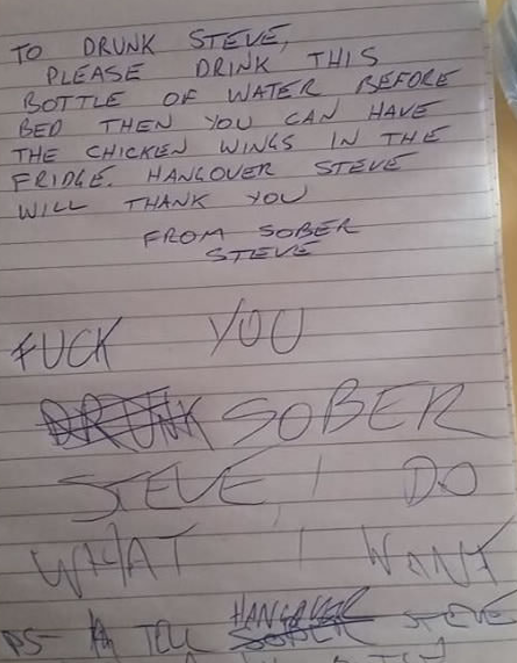 TO DRUNK STEVE,
PLEASE DRINK THIS
BOTTLE OF WATER BEFORE
BED THEN YOU CAN HAVE
THE CHICKEN WINGS IN THE
FRIDGE. HANGOVER STEVE
WILL THANK YOU
FROM SOBER
STEVE
FUCK YOU
DRUNK SOBER
STEVE, I DO
WHAT I WANT
HANGOVER
PS- TELL SOBER STEVE